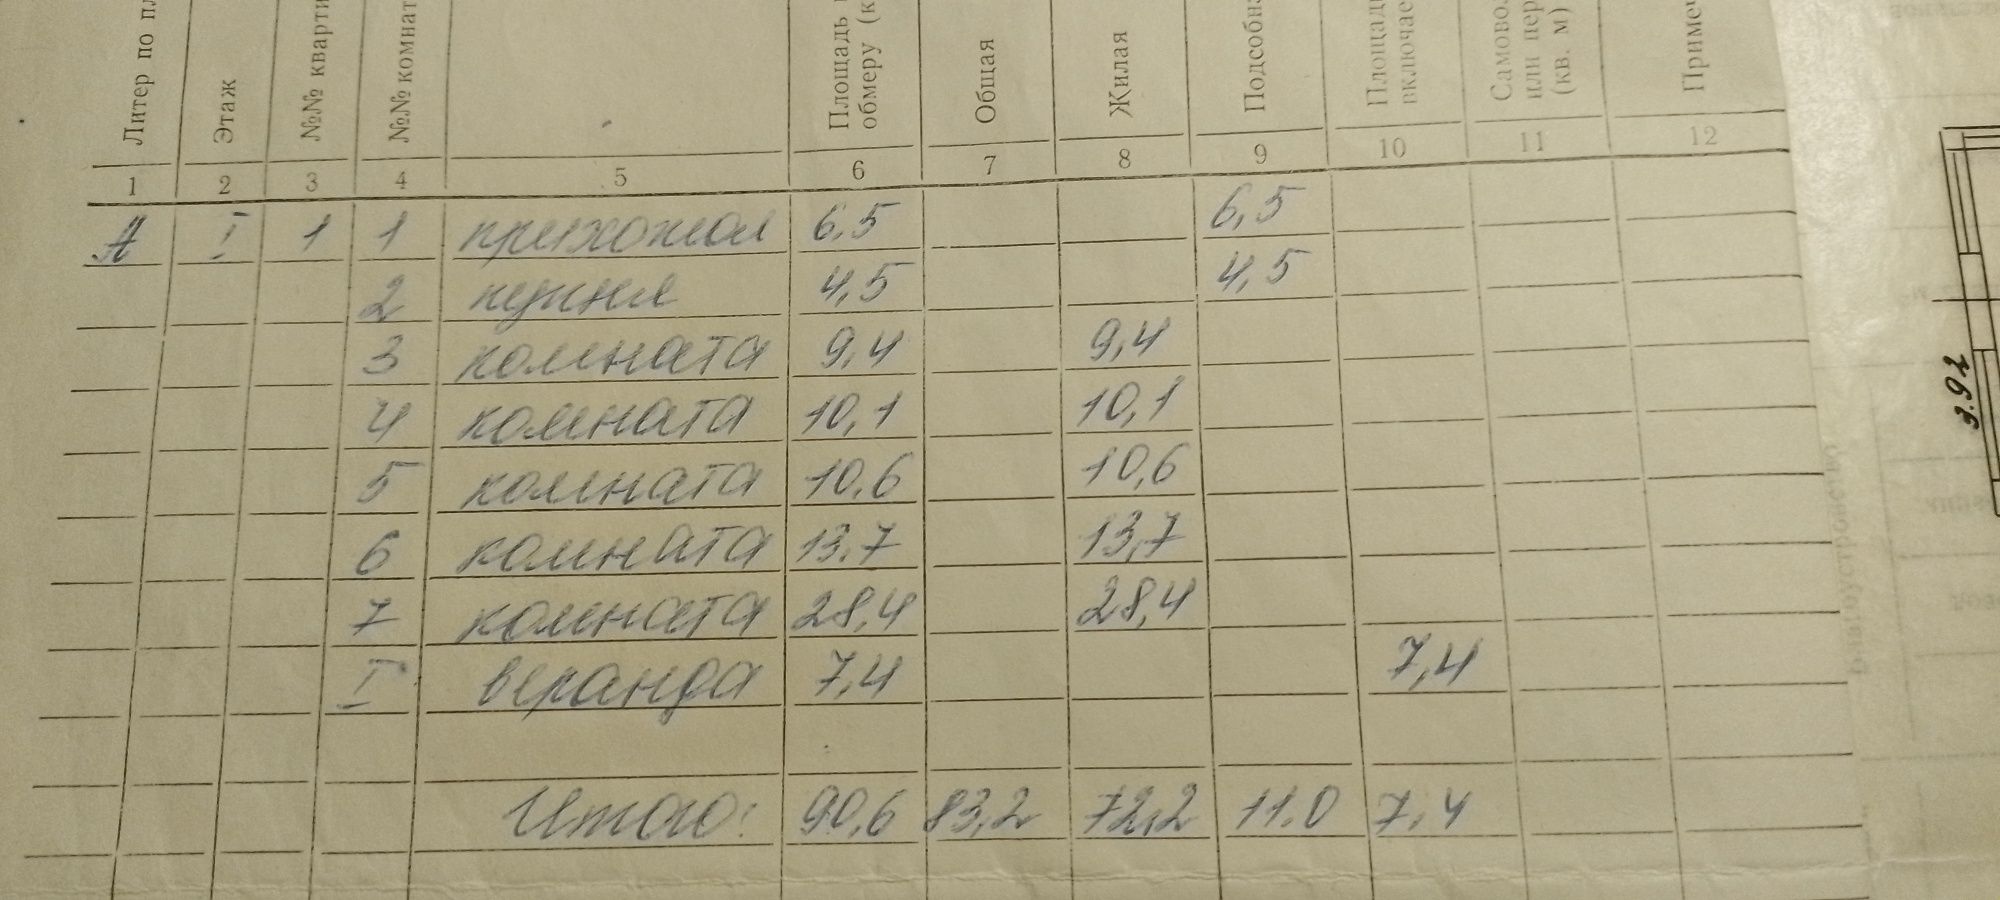 Литер по пл
Этаж
№№ кварти
№№ комнат
Площадь
обмеру (к
Общая
Жилая
Подсобна
Площад
включае
Самово
или пер
(кв. м)
Примеч
1 2 3 4 5 6 7 8 9 10 11 12
А I 1 1 прихожая 6,5 6,5
2 кухня 4,5 4,5
3 комната 9,4 9,4
4 комната 10,1 10,1
5 комната 10,6 10,6
6 комната 13,7 13,7
7 комната 28,4 28,4
I веранда 7,4 7,4
Итого: 90,6 83,2 72,2 11,0 7,4
3.92